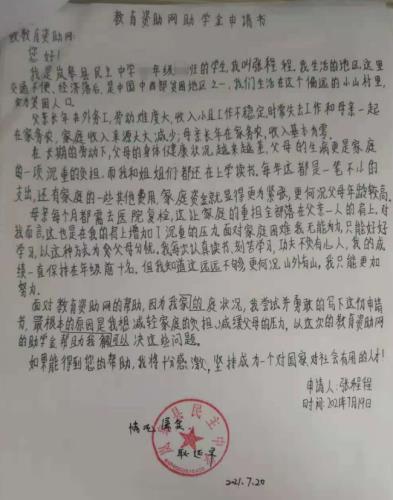 教育资助网助学金申请书
致教育资助网:
您好!
我是岚皋县民主中学 年级 班的学生,我叫张程程,我生活的地区,这里
交通不便,经济落后,是中国中西部贫困地区之一,我们生活在这个偏远的小山村里,
贫困人口。
父亲长年在外务工,劳动难度大,收入小且工作不稳定时常失去工作和母亲一起
在家务农,家庭收入来源大大减少;母亲长年在家务农,收入基本为零。
在长期的劳动下,父母的身体健康状况,越来越差,父母的生病更是家庭
的一项沉重的负担,而我和姐姐们都还在上学读书,每年这都是一笔不小的
支出,还有家庭的一些其他费用,家庭资金就显得更为紧张,更何况父母年龄较高,
母亲每个月都需去医院复检,这让家庭的重担全部落在父亲一人的肩上,对
我而言,这也是在我的肩上增加了沉重的压力面对家庭困难我无能为力,只能好好
学习,以这种方式为父母分忧,我每次认真读书,刻苦学习,功夫不负有心人,我的成
绩一直保持在年级前十名,但我知道这远远不够更何况山外有山,我只能更加
努力。
面对教育资助网的帮助,因为我家的庭状况,我尝试并勇敢的写下这份申请
书,最根本的原因是我想减轻家庭的负担,减缓父母的压力,以这次的教育资助网
的助学金帮助我解决这些问题。
如果能得到您的帮助,我将十分感激,坚持成为一个对国家对社会有用的人才!
申请人:张程程
时间:2021年7月19日
情况属实
岚皋县民主中学
2021.7.20